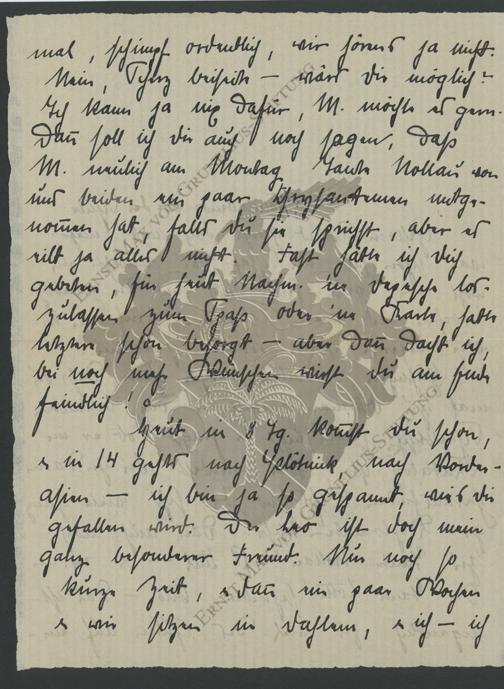 mal, schimpf ordentlich, wir hörens ja nicht.
Nein, Scherz beiseite – wärs Dir möglich?
Ich kann ja nix dafür, M. möchte es gern.
Dann soll ich Dir auch noch sagen, daß
M. neulich am Montag Tante Nollau von
uns beiden ein paar Chrysantemen mitge-
nommen hat, falls Du sie sprichst, aber es
eilt ja alles nicht. Fast hätte ich Dich
gebeten, für heut Nachm. 'ne Depesche los-
zulassen zum Spaß oder 'ne Karte, hatte
letztere schon besorgt – aber dann dacht ich,
bei noch mehr Wünschen wirst Du am Ende
feindlich!
Heut in 8 Tg. kommst Du schon,
u in 14 gehts nach Klötnick nach Vorder-
asien – ich bin ja so gespannt, wie's Dir
gefallen wird. Der Leo ist doch mein
ganz besonderer Freund. Nur noch so
kurze Zeit, u dann ein paar Wochen
u wir sitzen in Dahlem, u ich – ich
ERNST MAX VON GRUNELIUS-STIFTUNG
ERNST MAX VON GRUNELIUS-STIFTUNG